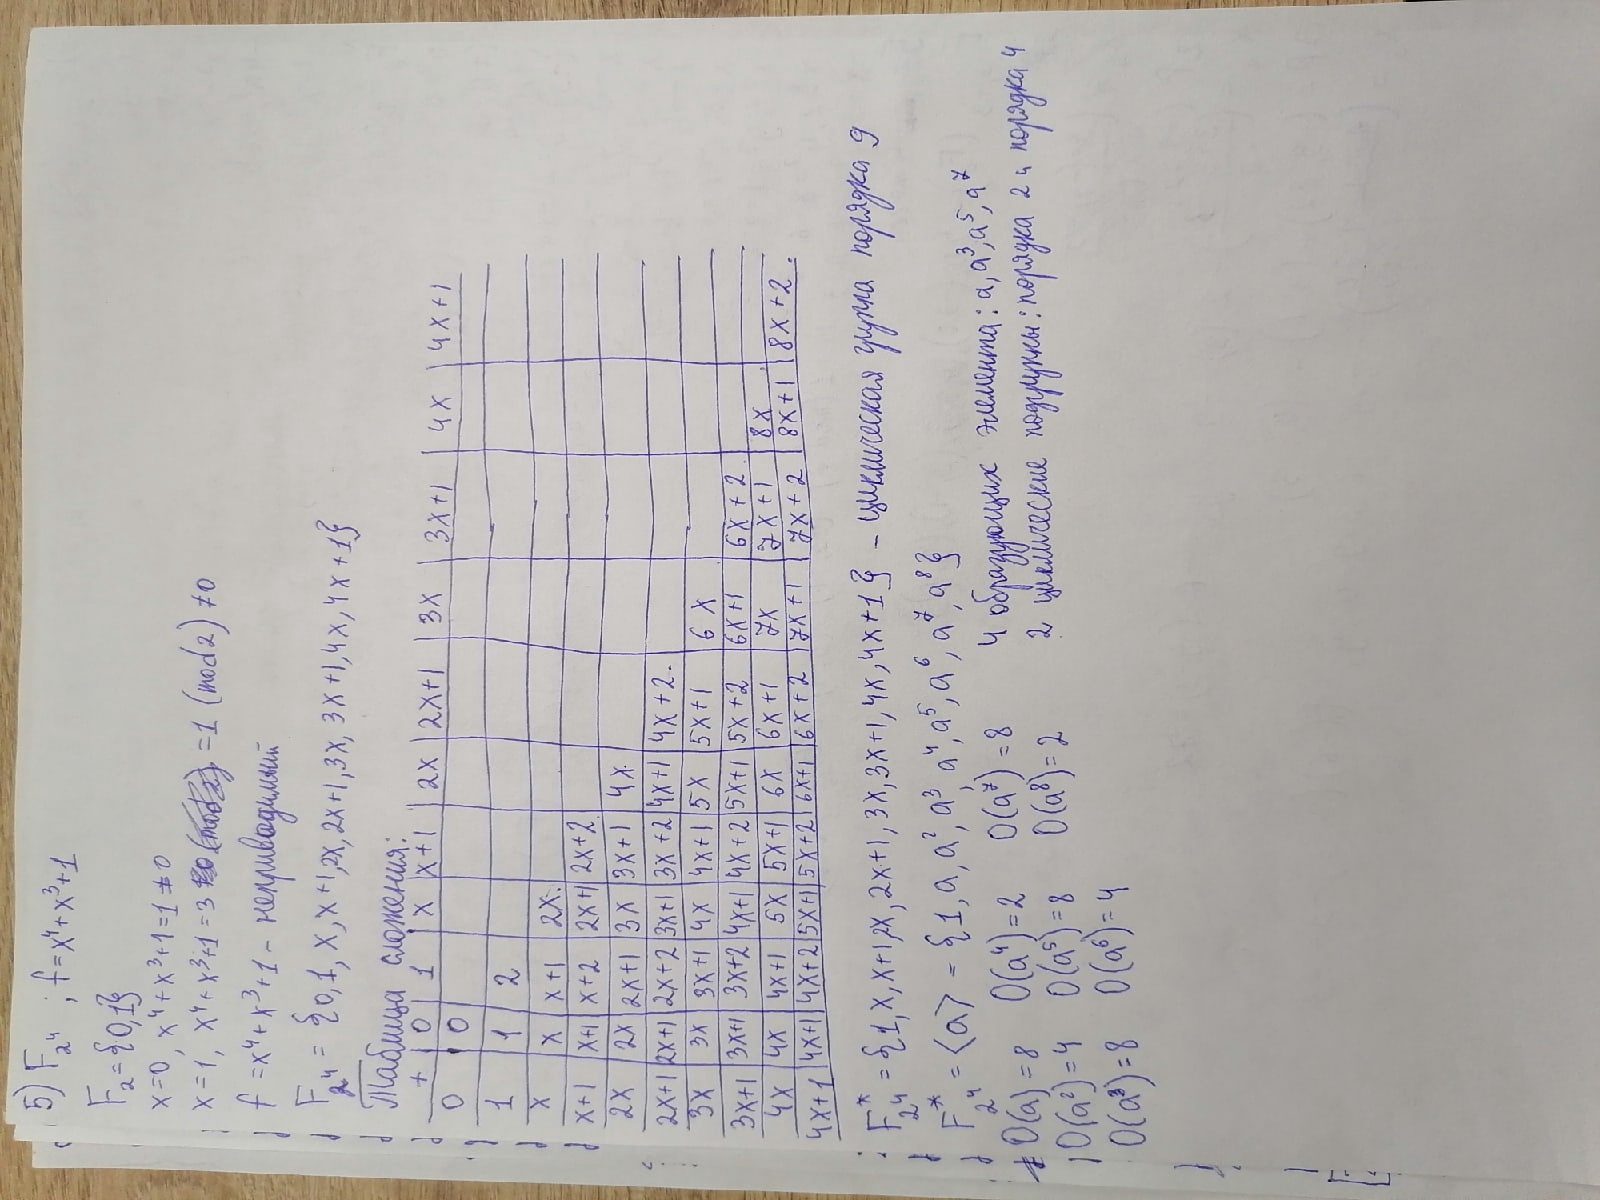 5) F_{2^4} ; f=x⁴+x³+1
F₂={0,1}
x=0, x⁴+x³+1=1≠0
x=1, x⁴+x³+1=3 =1 (mod2) ≠0
f =x⁴+x³+1 - неприводимый
F_{2^4} = {0,1, x, x+1, 2x, 2x+1, 3x, 3x+1, 4x, 4x+1}
Таблица сложения:
+ | 0 | 1 | x | x+1 | 2x | 2x+1 | 3x | 3x+1 | 4x | 4x+1
0 | 0
1 | 1 | 2
x | x | x+1 | 2x
x+1 | x+1 | x+2 | 2x+1 | 2x+2
2x | 2x | 2x+1 | 3x | 3x+1 | 4x
2x+1 | 2x+1 | 2x+2 | 3x+1 | 3x+2 | 4x+1 | 4x+2
3x | 3x | 3x+1 | 4x | 4x+1 | 5x | 5x+1 | 6x
3x+1 | 3x+1 | 3x+2 | 4x+1 | 4x+2 | 5x+1 | 5x+2 | 6x+1 | 6x+2
4x | 4x | 4x+1 | 5x | 5x+1 | 6x | 6x+1 | 7x | 7x+1 | 8x
4x+1 | 4x+1 | 4x+2 | 5x+1 | 5x+2 | 6x+1 | 6x+2 | 7x+1 | 7x+2 | 8x+1 | 8x+2
F*_{2^4} = {1, x, x+1, 2x, 2x+1, 3x, 3x+1, 4x, 4x+1} - циклическая группа порядка 9
F*_{2^4} = ⟨a⟩ = {1, a, a², a³, a⁴, a⁵, a⁶, a⁷, a⁸}
O(a)=8 O(a⁴)=2 O(a⁷)=8 4 образующих элемента: a, a³, a⁵, a⁷
O(a²)=4 O(a⁵)=8 O(a⁸)=2 2 циклические подгруппы: порядка 2 и порядка 4
O(a³)=8 O(a⁶)=4